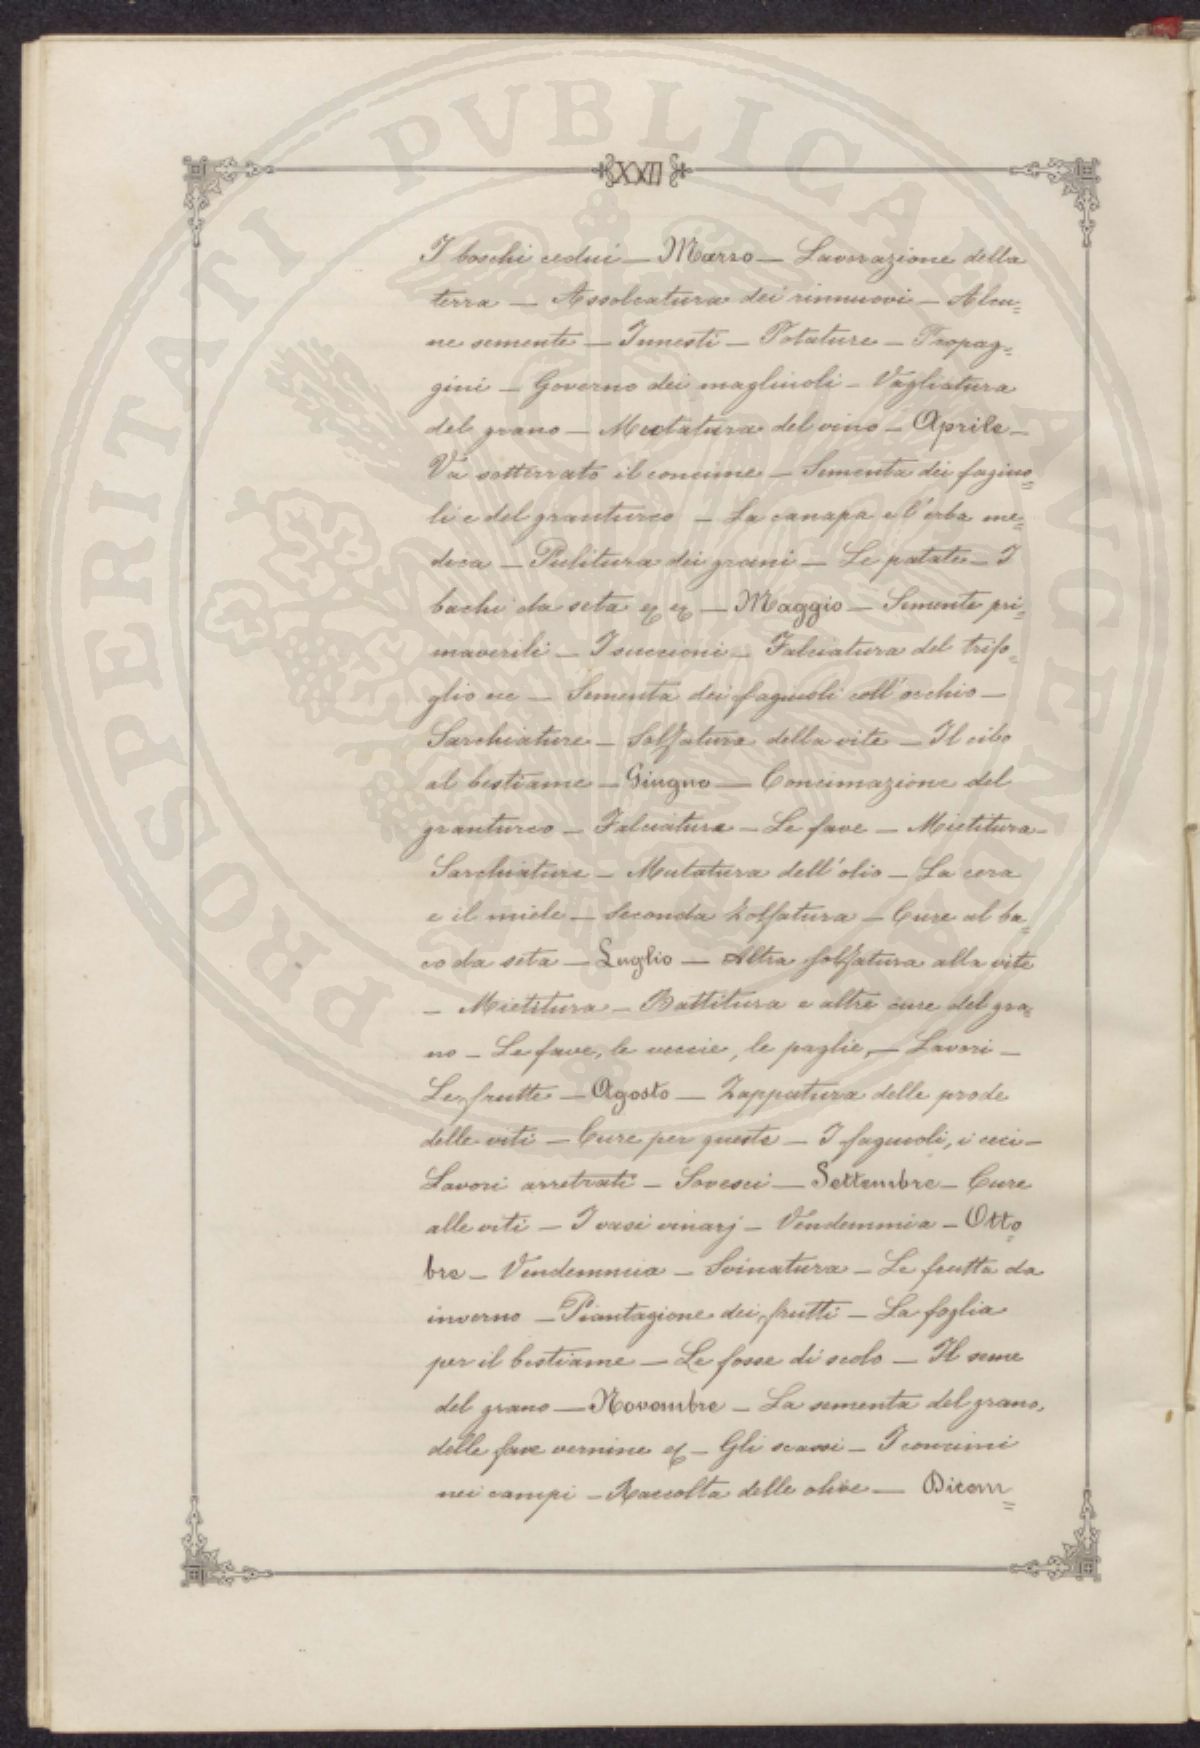 XXII
I boschi cedui — Marzo — Lavorazione della
terra — Assolcatura dei rinnuovi — Alcu=
ne semente — Innesti — Potature — Propag=
gini — Governo dei magliuoli — Vagliatura
del grano — Mutatura del vino — Aprile —
Va sotterrato il concime — Sementa dei fagiuo=
li e del granturco — La canapa e l'erba me=
dica — Pulitura dei grani — Le patate — I
bachi da seta — Maggio — Semente pri=
maverili — I succioni — Falciatura del trifo=
glio ec — Sementa dei fagiuoli coll'occhio —
Sarchiature — Solfatura della vite — Il cibo
al bestiame — Giugno — Concimazione del
granturco — Falciatura — Le fave — Mietitura —
Sarchiature — Mutatura dell'olio — La cera
e il miele — Seconda Zolfatura — Cure al ba=
co da seta — Luglio — Altra solfatura alla vite
— Mietitura — Battitura e altre cure del gra=
no — Le fave, le veccie, le paglie, — Lavori —
Le frutte — Agosto — Zappatura delle prode
delle viti — Cure per queste — I fagiuoli, i ceci —
Lavori arretrati — Sovesci — Settembre — Cure
alle viti — I vasi vinarj — Vendemmia — Otto=
bre — Vendemmia — Svinatura — Le frutta da
inverno — Piantagione dei frutti — La foglia
per il bestiame — Le fosse di scolo — Il seme
del grano — Novembre — La sementa del grano,
delle fave vernine — Gli scassi — I concimi
nei campi — Raccolta delle olive — Dicem=
PROSPERITATI PVBLICAE AVGENDAE